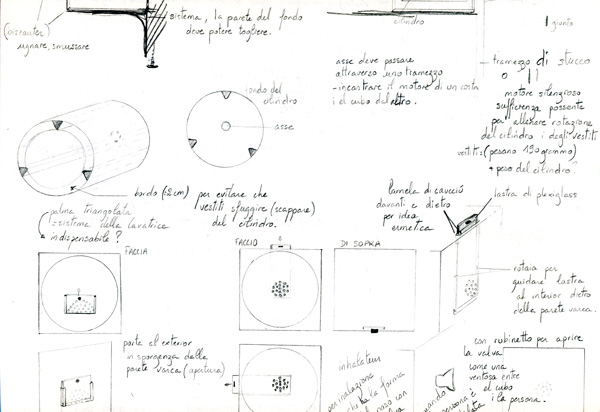 (biseauter
ugnare, smussare
sistema, la parete del fondo
deve potere togliere.
cilindro
1 giunto
asse deve passare
attraverso uno tramezzo
- incastrare il motore di un costa
i el cubo del altro.
tramezzo di stucco
motore silenzioso
sufficenza possente
per allenare rotazione
del cilindro i degli vestiti
vestiti: (pesano 190 grammo)
+ peso del cilindro?
fondo del
cilindro
asse
bordo (≤2cm)
per evitare che
vestiti sfuggire (scappare)
del cilindro.
palma triangolata
sistema della lavatrice
indispensabile?
Lamela di caucciù
davanti e dietro
per idea
ermetica
lastra di plexiglass
FACCIA
FACCIO
DI SOPRA
rotaia per
guidare lastra
al interior dietro
della parete varca.
porta al exterior
in sporgenza dalla
parete varca (apertura)
inhalateur
per inalazione
che ha la forma
con
con rubinetto per aprire
la valva
come una
ventosa entre
el cubo
i la persona.